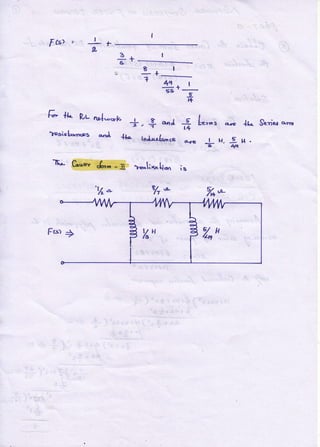 F(s) = 1/2 + 1
3/s + 1
8/7 + 1
49/5s + 1
5/14
For the RL network 1/2, 8/7 and 5/14 terms are the Series arm
resistances and the inductance are 1/3 H, 5/49 H.
The Cauer form-II realisation is
1/2 Ω 8/7 Ω 5/14 Ω
F(s) ⇒ 1/3 H 5/49 H